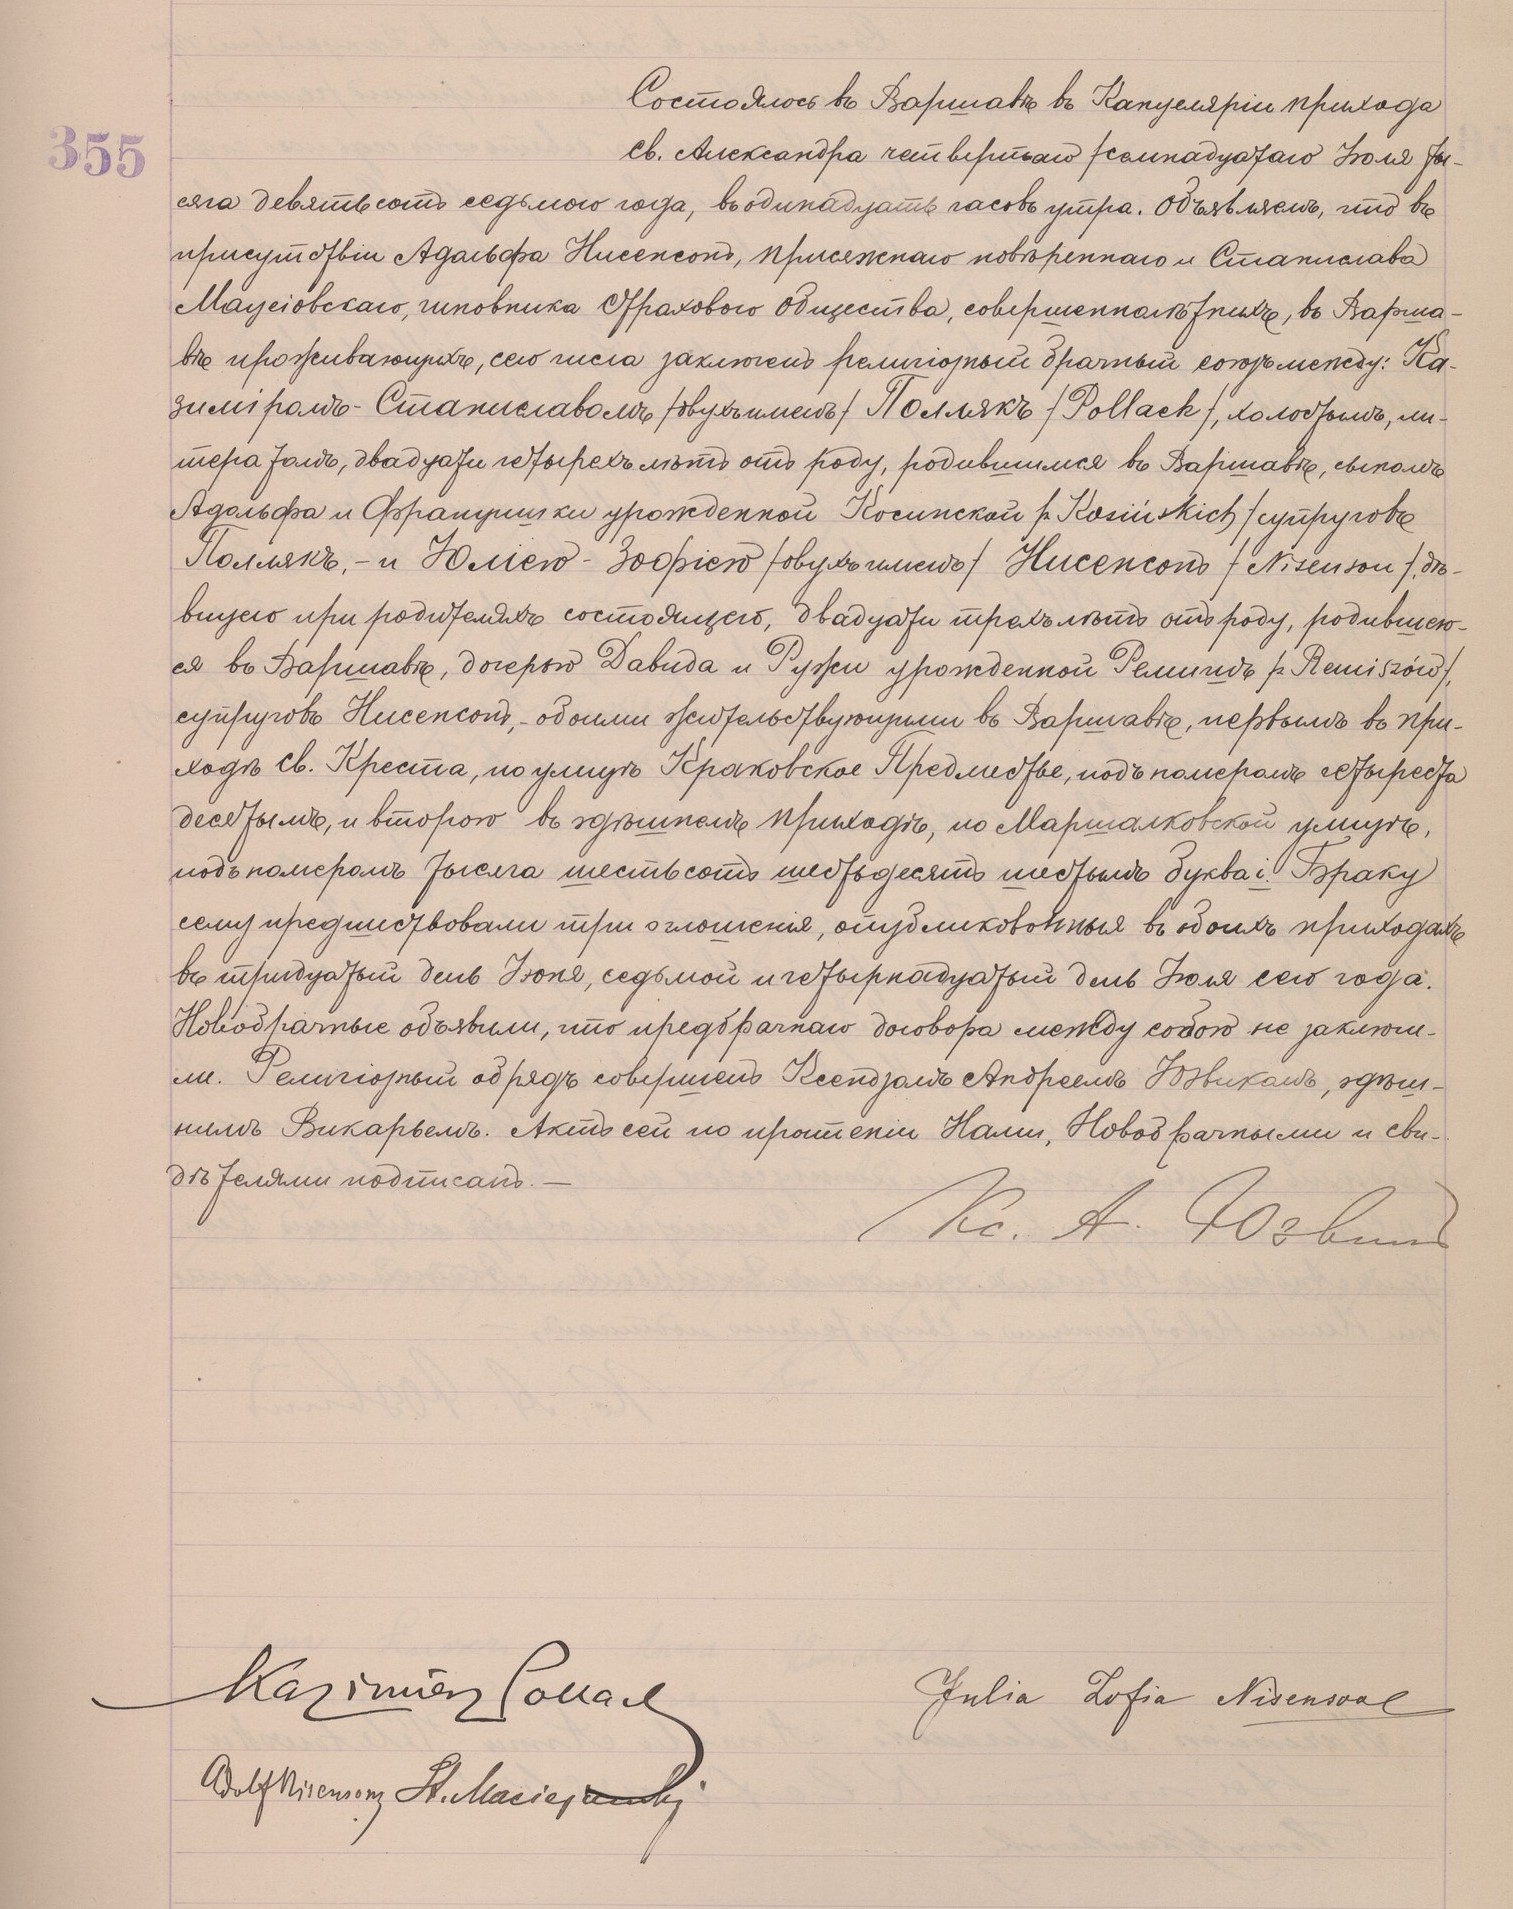 355
Состоялось въ Варшавѣ въ Канцеляріи прихода
св. Александра четвертаго /семнадцатаго Іюля ты-
сяча девятьсотъ седьмого года, въ одинадцать часовъ утра. Объявляемъ, что въ
присутствіи Адольфа Нисенсонъ, присяжнаго повѣреннаго и Станислава
Маціовскаго, чиновника Страхового Общества, совершеннолѣтнихъ, въ Варша-
вѣ проживающихъ, сего числа заключенъ религіозный брачный союзъ между: Ка-
зиміромъ-Станиславомъ /двухъ именъ/ Поллякъ /Pollack/, холостымъ, ли-
тератомъ, двадцати четырехъ лѣтъ отъ роду, родившимся въ Варшавѣ, сыномъ
Адольфа и Францишки урожденной Косинской /z Kosińskich/ супруговъ
Поллякъ,- и Юліею-Зофіею /двухъ именъ/ Нисенсонъ /Nisenson/, дѣ-
вицею при родителяхъ состоящею, двадцати трехъ лѣтъ отъ роду, родившею-
ся въ Варшавѣ, дочерью Давида и Ружи урожденной Ремишъ /z Remiszów/,
супруговъ Нисенсонъ,- обоими жительствующими въ Варшавѣ, первымъ въ при-
ходѣ св. Креста, по улицѣ Краковское Предместье, подъ номеромъ четыреста
десятымъ, и второю въ здѣшнемъ приходѣ, по Маршалковской улицѣ,
подъ номеромъ тысяча шестьсотъ шестьдесятъ шестымъ буква i. Браку
сему предшествовали три оглошенія, опубликованныя въ обоихъ приходахъ
въ тридцатый день Іюня, седьмой и четырнадцатый день Іюля сего года.
Новобрачные объявили, что предбрачнаго договора между собою не заключи-
ли. Религіозный обрядъ совершенъ Ксендзомъ Андреемъ Юзвикомъ, здѣш-
нимъ Викарьемъ. Актъ сей по прочтеніи Нами, Новобрачными и сви-
дѣтелями подписанъ.—
Кс. А. Юзвикъ
Kazimierz Pollack
Julia Zofia Nisenson
Adolf Nisenson St. Maciejowski